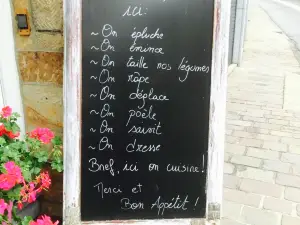 ici:
~ On épluche
~ On émince
~ On taille nos légumes
~ On râpe
~ On déplace
~ On poële
~ On saisit
~ On dresse
Bref, ici on cuisine!
Merci et
Bon Appétit!